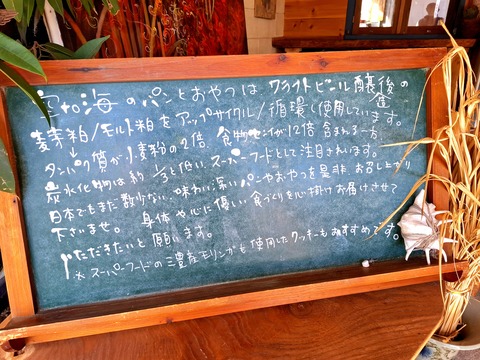 宙to海のパンとおやつは クラフトビール醸造後の
麦芽粕/モルト粕をアップサイクル/循環し使用しています。
タンパク質が小麦粉の2倍、食物センイが12倍 含まれる一方
炭水化物は約1/3と低い、スーパーフードとして注目されています。
日本でもまだ数少ない、味わい深いパンやおやつを是非、お召し上がり
下さいませ。 身体や心に優しい食づくりを心掛けお届けさせて
いただきたいと願います。
※スーパーフードの三豊産モリンガも使用したクッキーもおすすめです。